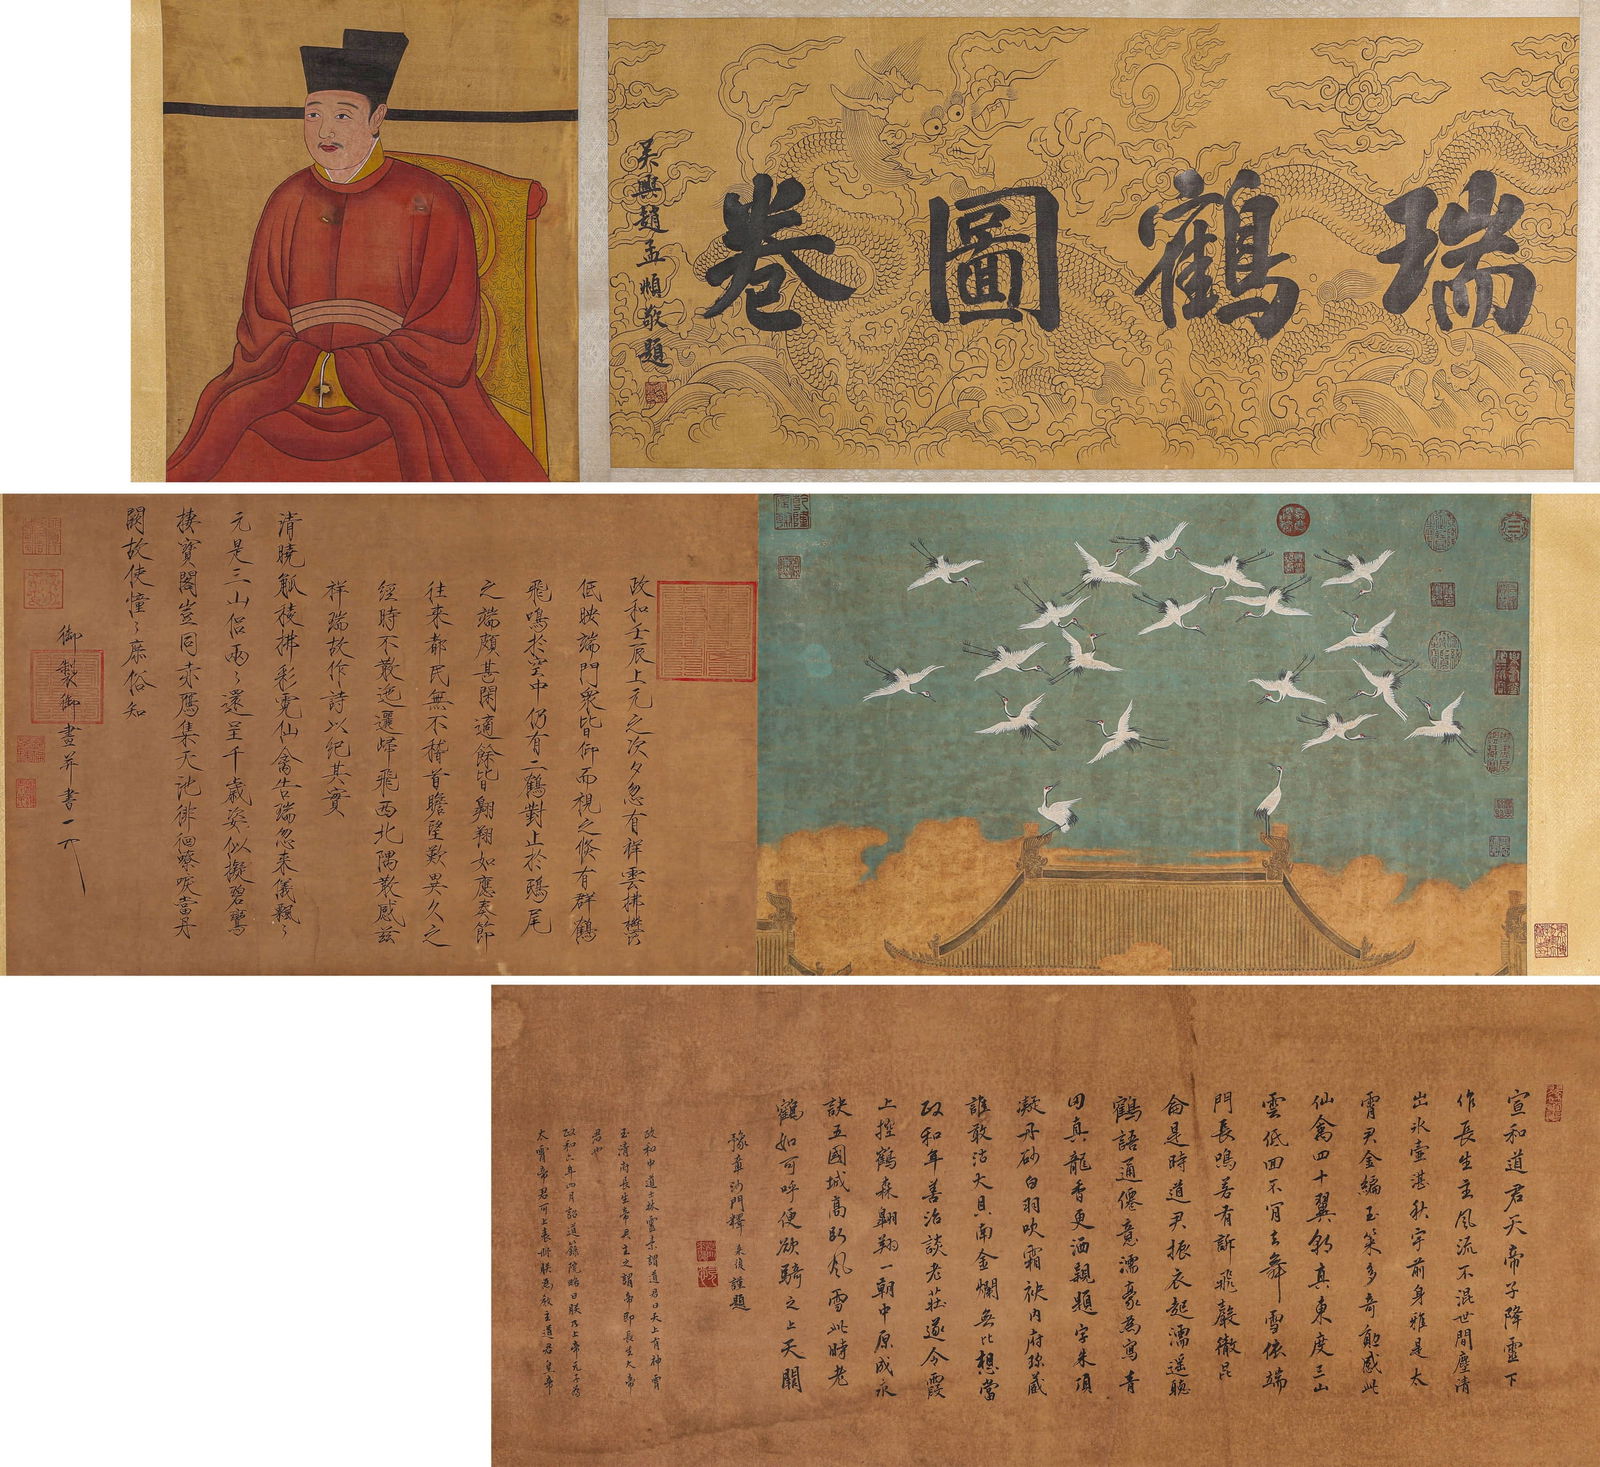 瑞鶴圖卷
吳興趙孟頫敬題
政和壬辰上元之次夕忽有祥雲拂鬱
低映端門衆皆仰而視之倐有群鶴
飛鳴於空中仍有二鶴對止於鴟尾
之端頗甚閑適餘皆翱翔如應奏節
往來都民無不稽首瞻望歎異久之
經時不散迤邐歸飛西北隅散感茲
祥瑞故作詩以紀其實
清曉觚稜拂彩霓仙禽告瑞忽來儀飄〻
元是三山侶兩〻還呈千歲姿似擬碧鸞
棲寶閣豈同赤鴈集天池徘徊嘹唳當丹
闕故使憧〻庶俗知
御製御畫并書
宣和道君天帝子降靈下
作長生主風流不混世間塵清
出冰壺湛秋宇前身雅是太
霄君金編玉策多奇勳感此
仙禽四十翼朝真東度三山
雲低回不肎去舞雪依端
門長鳴若有訴飛聲徹昆
侖是時道君振衣起濡遥聽
鶴語通僊意濡豪為寫青
田真龍香更洒親題字朱頂
凝丹砂白羽吹霜袂內府珎藏
誰敢沽大貝南金爛無比想當
政和年善治談老莊遂令霞
上控鶴森翱翔一朝中原成永
訣五國城高臥風雪此時老
鶴如可呼便欲騎之上天闕
豫章沙門釋来復謹題
政和中道士林靈素謂道君曰天上有神霄
玉清府長生帝君主之謂帝即長生大帝
君也
政和六年四月詔道籙院略曰朕乃上帝元子為
太霄帝君可上表冊朕為教主道君皇帝